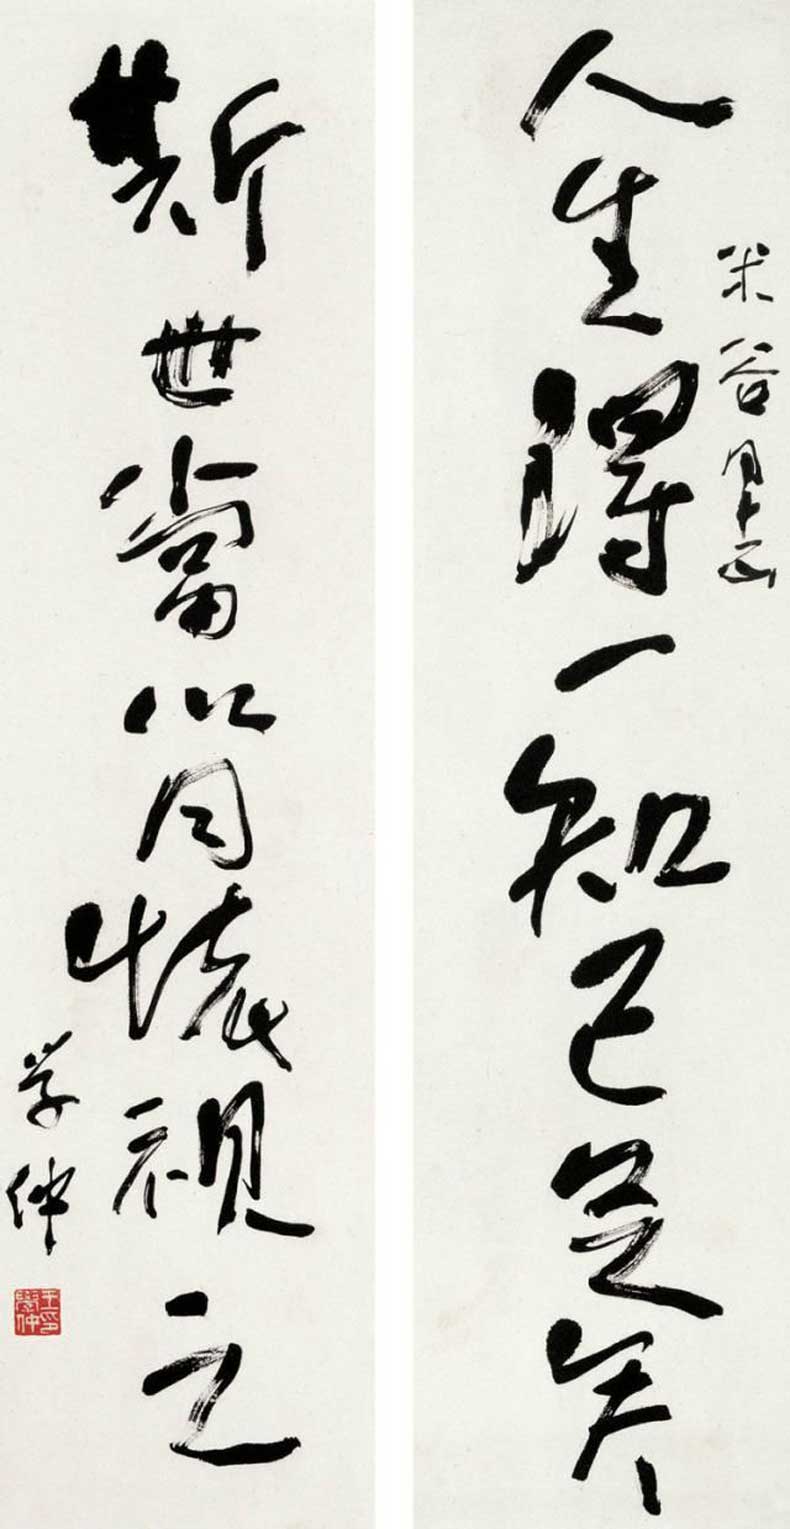 米谷同志正
人生得一知己足矣
斯世當以同懷視之
学仲
王學仲印